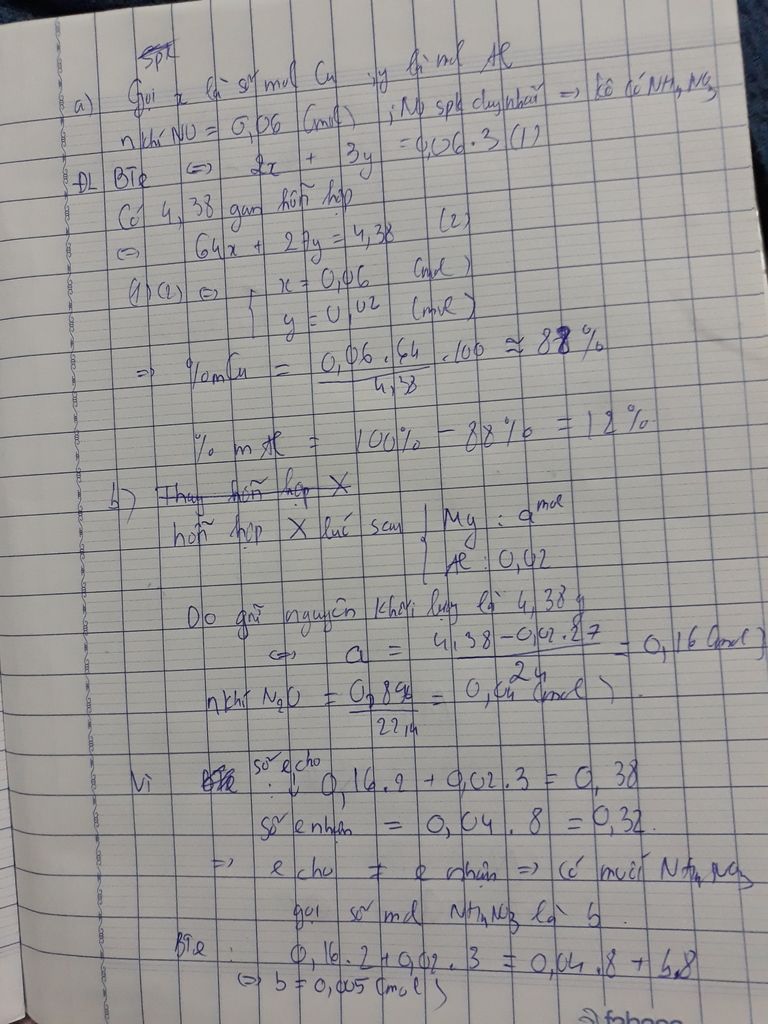 a) Gọi x là số mol Cu , y là mol Al
n khí NO = 0,06 (mol) ; NO spk duy nhất => kô có NH4NO3
ĐL BTe <=> 2x + 3y = 0,06.3 (1)
Có 4,38 gam hỗn hợp
<=> 64x + 27y = 4,38 (2)
(1)(2) <=> { x = 0,06 (mol)
y = 0,02 (mol)
=> %mCu = 0,06.64 / 4,38 .100 ≈ 88%
% m Al = 100% - 88% = 12%
b) Thay hỗn hợp X
hỗn hợp X lúc sau { Mg : a mol
Al : 0,02
Do giữ nguyên khối lượng là 4,38g
<=> a = 4,38 - 0,02.27 / 24 = 0,16 (mol)
n khí N2O = 0,896 / 22,4 = 0,04 (mol)
Vì số e cho : 0,16.2 + 0,02.3 = 0,38
số e nhận = 0,04.8 = 0,32.
=> e cho ≠ e nhận => có muối NH4NO3
gọi số mol NH4NO3 là b.
BTe : 0,16.2 + 0,02.3 = 0,04.8 + b.8
<=> b = 0,005 (mol)